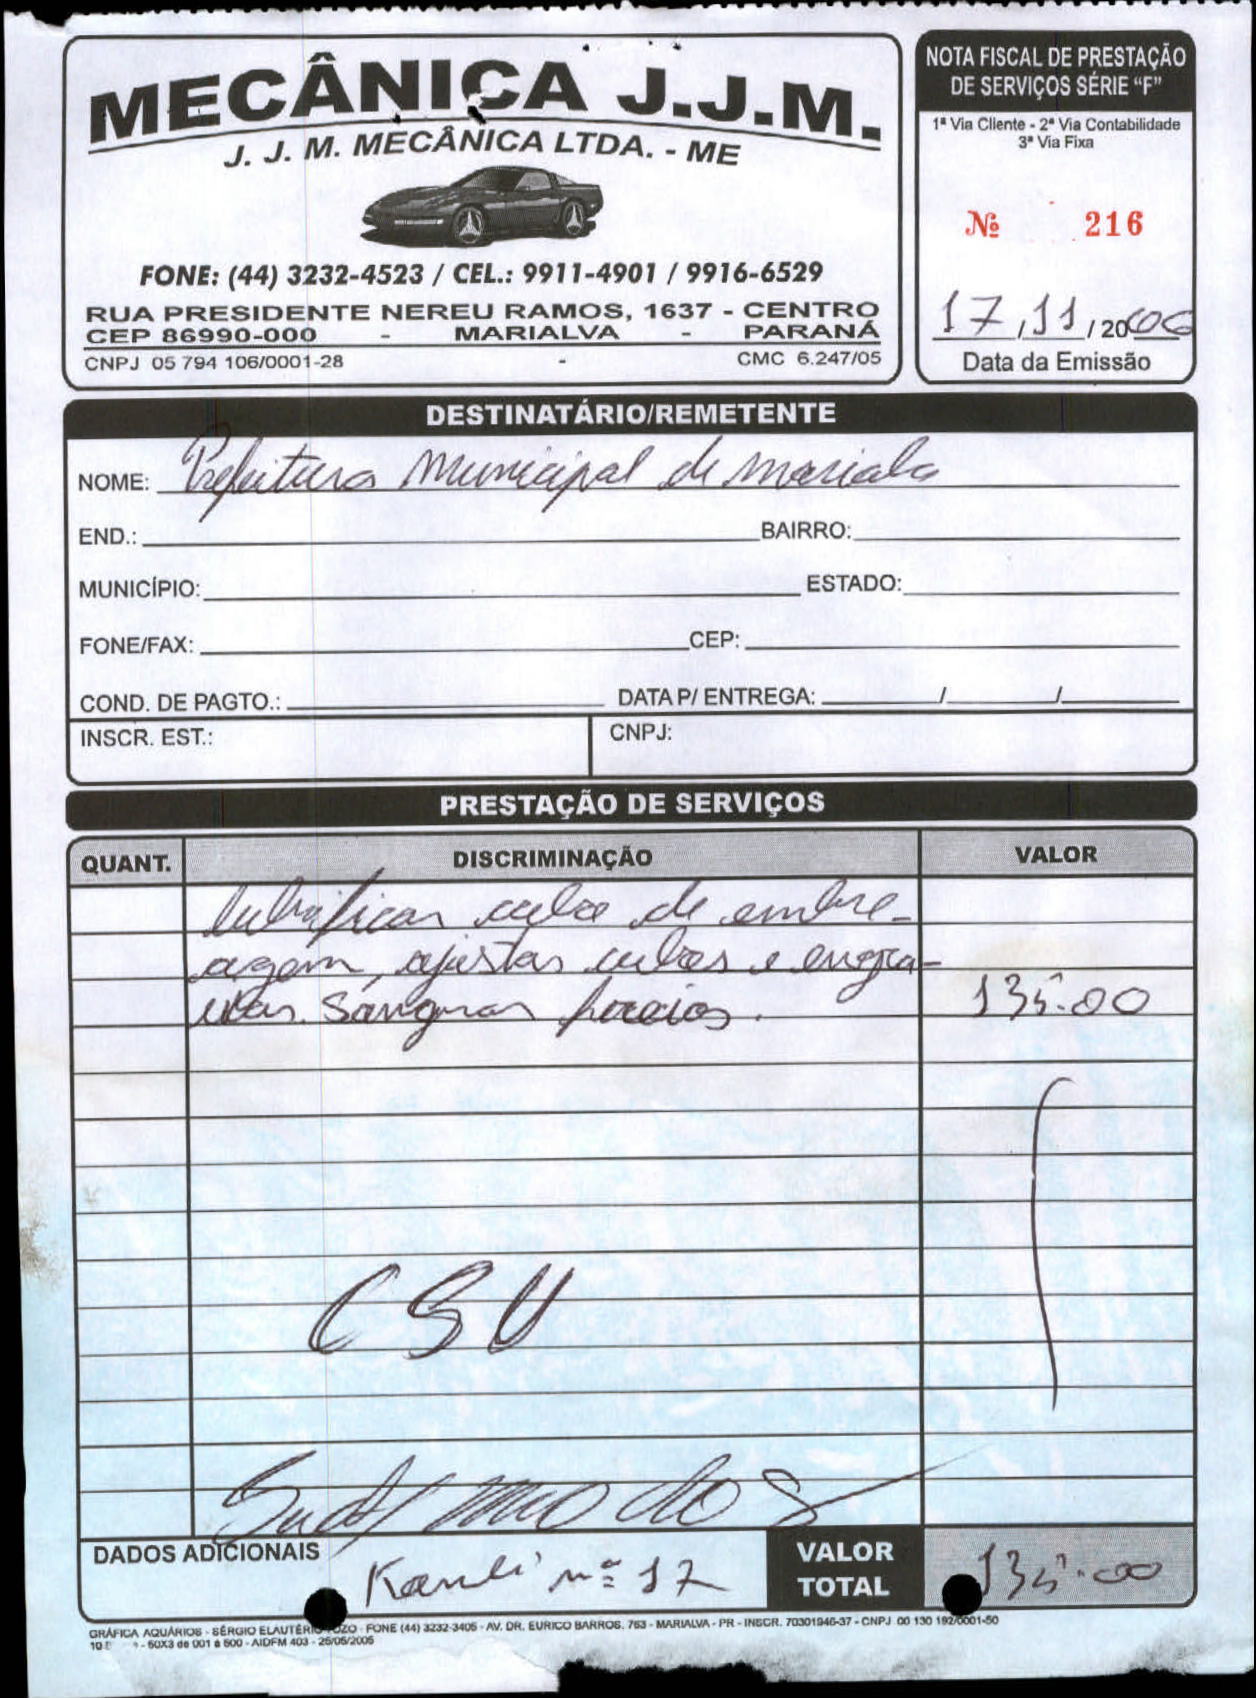 MECÂNICA J.J.M.
J. J. M. MECÂNICA LTDA. - ME
FONE: (44) 3232-4523 / CEL.: 9911-4901 / 9916-6529
RUA PRESIDENTE NEREU RAMOS, 1637 - CENTRO
CEP 86990-000 - MARIALVA - PARANÁ
CNPJ 05 794 106/0001-28 - CMC 6.247/05
NOTA FISCAL DE PRESTAÇÃO
DE SERVIÇOS SÉRIE “F”
1ª Via Cliente - 2ª Via Contabilidade
3ª Via Fixa
Nº 216
17/11/2006
Data da Emissão
DESTINATÁRIO/REMETENTE
NOME: Prefeitura Municipal de
END.: BAIRRO:
MUNICÍPIO: ESTADO:
FONE/FAX: CEP:
COND. DE PAGTO.: DATA P/ ENTREGA: / /
INSCR. EST.: CNPJ:
PRESTAÇÃO DE SERVIÇOS
QUANT. DISCRIMINAÇÃO VALOR
lubrificar de embre-
agem, ajustar cubos e engra-
Sangrar 135.00
CSU
DADOS ADICIONAIS
nº 17
VALOR TOTAL 135.00
GRÁFICA AQUÁRIOS - SÉRGIO ELAUTÉRIO - FONE (44) 3232-3405 - AV. DR. EURICO BARROS. 763 - MARIALVA - PR - INSCR. 70301946-37 - CNPJ 00 130 192/0001-50
- 50X3 de 001 à 500 - AIDFM 403 - 25/05/2005